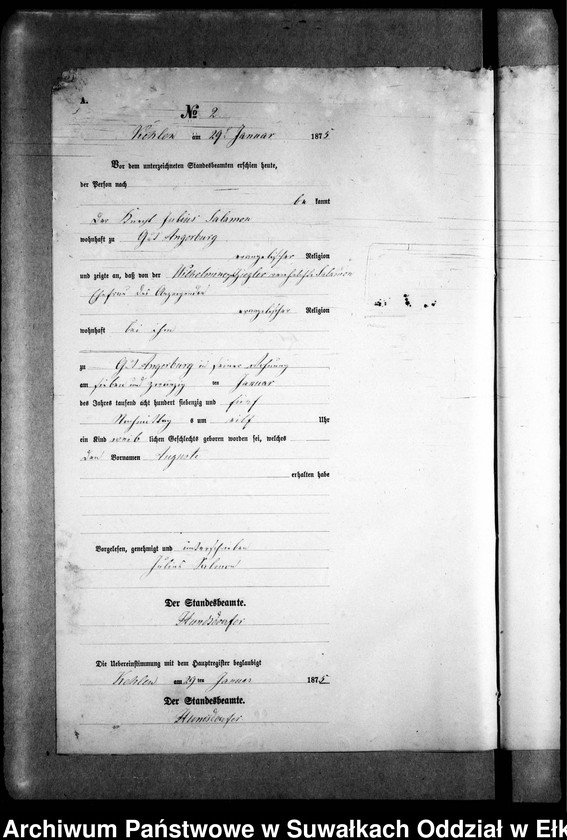 A.
№ 2
Kehlen am 29 Januar 1875
Vor dem unterzeichneten Standesbeamten erschien heute,
der Person nach
be kannt
Der Knecht Julius Salamon
wohnhaft zu Gut Angerburg
evangelischer Religion
und zeigte an, daß von der Wilhelmine Ziegler verehelichte Salamon
Ehefrau des Anzeigenden
evangelischer Religion
wohnhaft bei ihm
zu Gut Angerburg in seiner Wohnung
am sieben und zwanzig ten Januar
des Jahres tausend acht hundert siebenzig und fünf
Nachmittag s um elf Uhr
ein Kind weib lichen Geschlechts geboren worden sei, welches
den Vornamen Auguste
erhalten habe
Vorgelesen, genehmigt und unterschrieben
Julius Salmon
Der Standesbeamte.
Die Uebereinstimmung mit dem Hauptregister beglaubigt
Kehlen am 29 ten Januar 1875
Der Standesbeamte.
Archiwum Państwowe w Suwałkach Oddział w Ełk